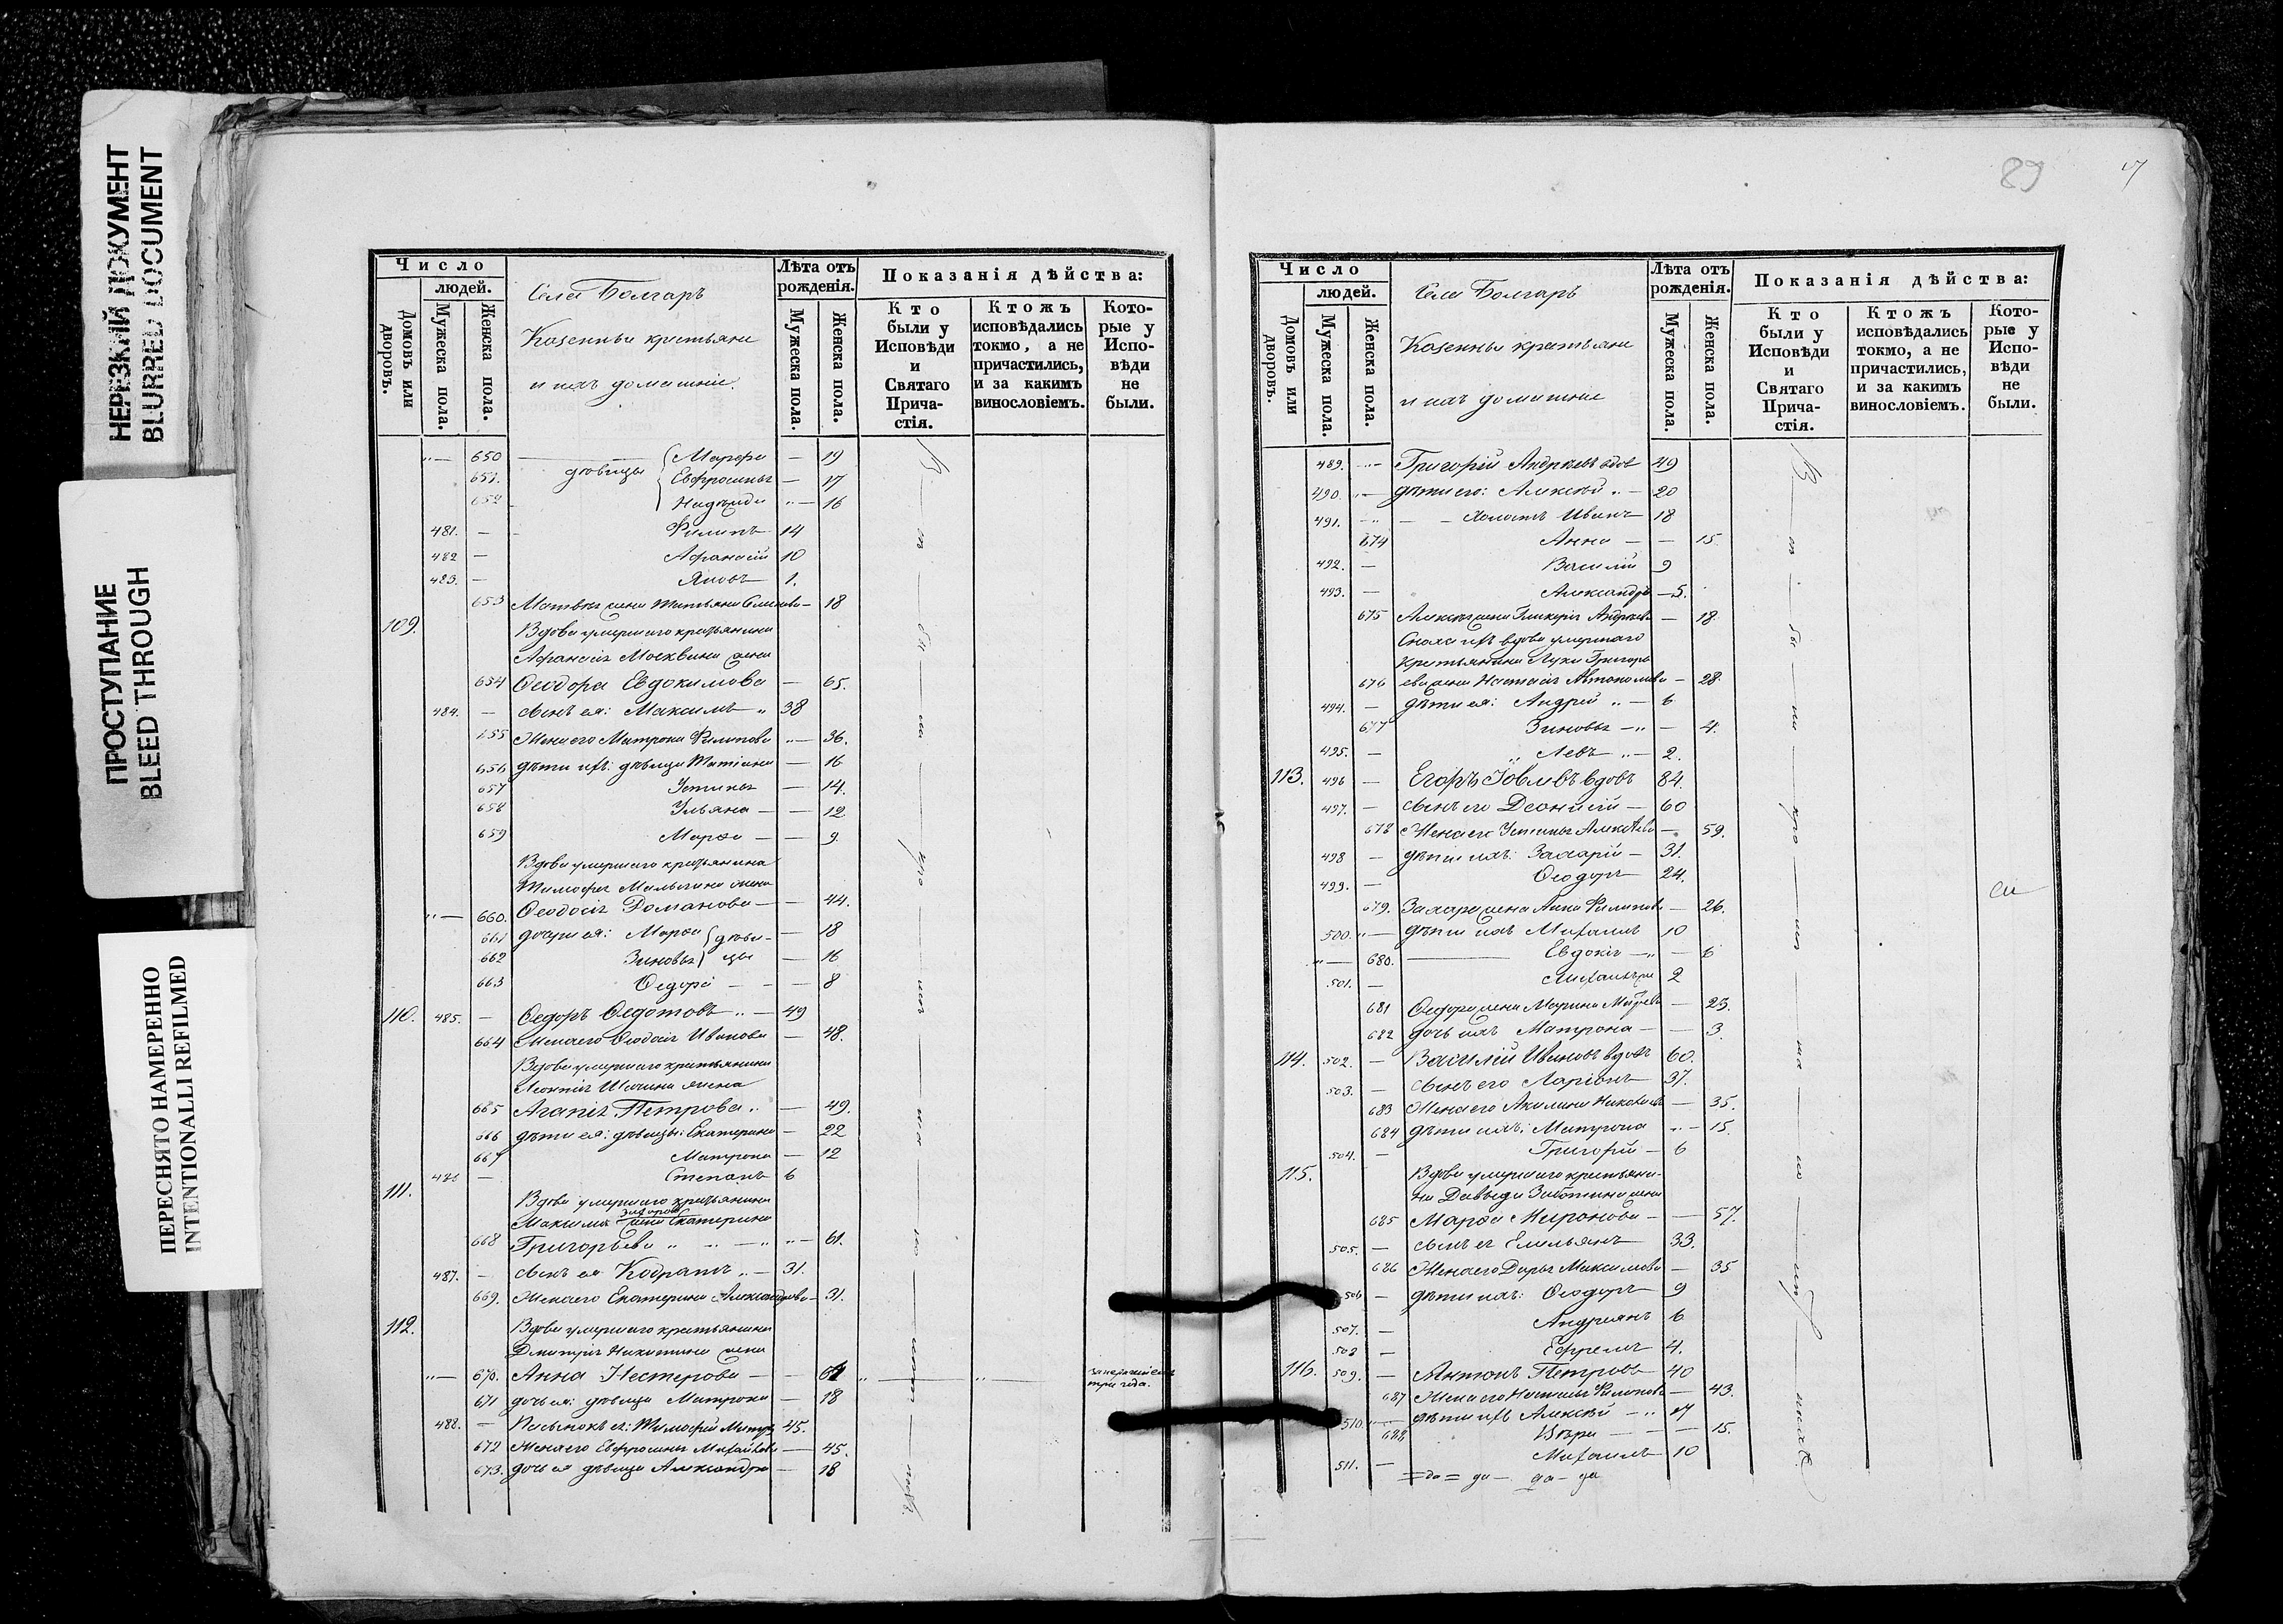 НЕРЕЗКИЙ ДОКУМЕНТ
BLURRED DOCUMENT
ПРОСТУПАНИЕ
BLEED THROUGH
ПЕРЕСНЯТО НАМЕРЕННО
INTENTIONALLI REFILMED
Число
людей.
Домовъ или дворовъ.
Мужеска пола.
Женска пола.
Села Болгаръ
Казенные крестьяне
и ихъ домашніе.
Лѣта отъ рожденія.
Мужеска пола.
Женска пола.
Показанія дѣйства:
Кто были у Исповѣди и Святаго Причастія.
Ктожъ исповѣдались токмо, а не причастились, и за какимъ винословіемъ.
Которые у Исповѣди не были.
650 Марфа — 19
651. дѣвицы Евфросинья — 17
652 Надежда — 16
481. — Филипъ 14
482 — Афанасій 10
483. — Яковъ 1.
653 жена Татьяна — 18
109. Вдова умершаго крестьянина
Афанасія Москвина жена
654 Ѳеодора Евдокимова — 65.
484. — сынъ ея: Максимъ 38
655 Жена его Матрона Филипова — 36.
656 дѣти ихъ: дѣвица Татіана — 16
657 Устинья — 14.
658 Ульяна — 12
659 Марфа — 9.
Вдова умершаго крестьянина
Тимофея жена
660. Ѳеодосія Романова — 44.
661 дочери ея: Марфа дѣви- — 18
662 Зиновья цы — 16
663 Ѳедора — 8
110. 485. — Ѳедоръ Ѳедотовъ — 49
664 Жена его Ѳеодосія Иванова — 48.
Вдова умершаго крестьянина
Леонтія жена
665 Агапія Петрова — 49.
666 дѣти ея: дѣвицы: Екатерина — 22
667 Матрона — 12
486 — Степанъ 6
111. Вдова умершаго крестьянина
Максима жена Екатерина
668 Григорьева — 61.
487. — сынъ ея Кодратъ — 31.
669. Жена его Екатерина Александрова — 31.
112. Вдова умершаго крестьянина
Дмитрія Никитина жена
670. Анна Нестерова — 61
три года.
671 дочь ея: дѣвица Матрона — 18
488. — Пасынокъ ея: Тимофей 45.
672 Жена его Евфросинья Михайлова — 45.
673. дочь ея дѣвица Александра — 18
89
Число
людей.
Домовъ или дворовъ.
Мужеска пола.
Женска пола.
Села Болгаръ
Казенные крестьяне
и ихъ домашніе
Лѣта отъ рожденія.
Мужеска пола.
Женска пола.
Показанія дѣйства:
Кто были у Исповѣди и Святаго Причастія.
Ктожъ исповѣдались токмо, а не причастились, и за какимъ винословіемъ.
Которые у Исповѣди не были.
489. — Григорій Андреевъ вдов 49
490. — дѣти его: Алексѣй — 20
491. — холостъ Иванъ 18
674 Анна — 15
492. — Василій 9
493. — Александръ — 5.
675 жена Гликерія Андреева — 18
Сноха ихъ вдова умершаго
крестьянина Луки Григорь
676 ева жена Настасія Автономова — 28.
494. — дѣти ея: Андрей — 6
677 Зиновья — 4.
495. — Левъ — 2.
113. 496 — Егоръ Іовлевъ вдовъ 84.
497. — сынъ его Деонисій — 60
678 Жена его Устинья Алексѣева — 59.
498 — дѣти ихъ: Захарій — 31.
499. — Ѳеодоръ — 24.
679. Захара жена Анна Филипова — 26.
500. — дѣти ихъ Михаилъ 10
680. Евдокія — 6
501. — Михаилъ 2
681 Ѳедора жена Марина — 23.
682 дочь ихъ Матрона — 3
114. 502. — Василій Ивановъ вдовъ 60.
503. — сынъ его Ларіонъ 37.
683 Жена его Акилина — 35.
684 дѣти ихъ: Матрона — 15.
504. — Григорій — 6
115. Вдова умершаго крестьяни-
на Давыда жена
685 Марфа Миронова — 57.
505. — сынъ ея Емельянъ 33.
686 Жена его Дарья Максимова — 35
506 — дѣти ихъ: Ѳеодоръ 9
507. — Андреянъ 6
508 — Ефремъ 4.
116. 509. — Антонъ Петровъ 40
687 Жена его — 43.
510. — дѣти ихъ Алексѣй — 17
688 Вѣра — 15.
511. — Михаилъ 10